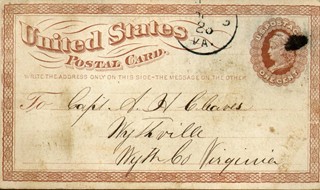 United States
POSTAL CARD.
WRITE THE ADDRESS ONLY ON THIS SIDE - THE MESSAGE ON THE OTHER
20
VA.
U.S. POSTAGE
ONE CENT
To Capt. S. H. Chaves
Wytheville
Wythe Co Virginia